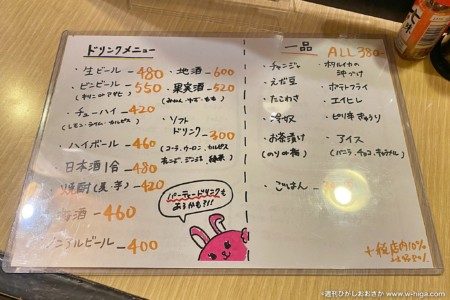 ドリンクメニュー
・生ビール — 480
・ビンビール — 550
(キリン or アサヒ)
・チューハイ — 420
(レモン・ライム・カルピス)
・ハイボール — 460
日本酒1合 — 480
焼酎(麦・芋) — 420
酒 — 460
ノンアルビール — 400
・地酒 — 600
・果実酒 — 520
(みかん・ゆず・もも)
・ソフト
ドリンク — 300
(コーラ・ウーロン・カルピス
パーティードリンクも
あるかも?!!
一品 ALL 380
・チャンジャ
・えだ豆
・たこわさ
・冷奴
・お茶漬け
(のり or 梅)
・ごはん —
・ホタルイカの
沖づけ
・ポテトフライ
・エイヒレ
・ピリ辛きゅうり
・アイス
(バニラ・チョコ・キャラメル)
+税 店内10%
©週刊ひがしおおさか www.w-higa.com